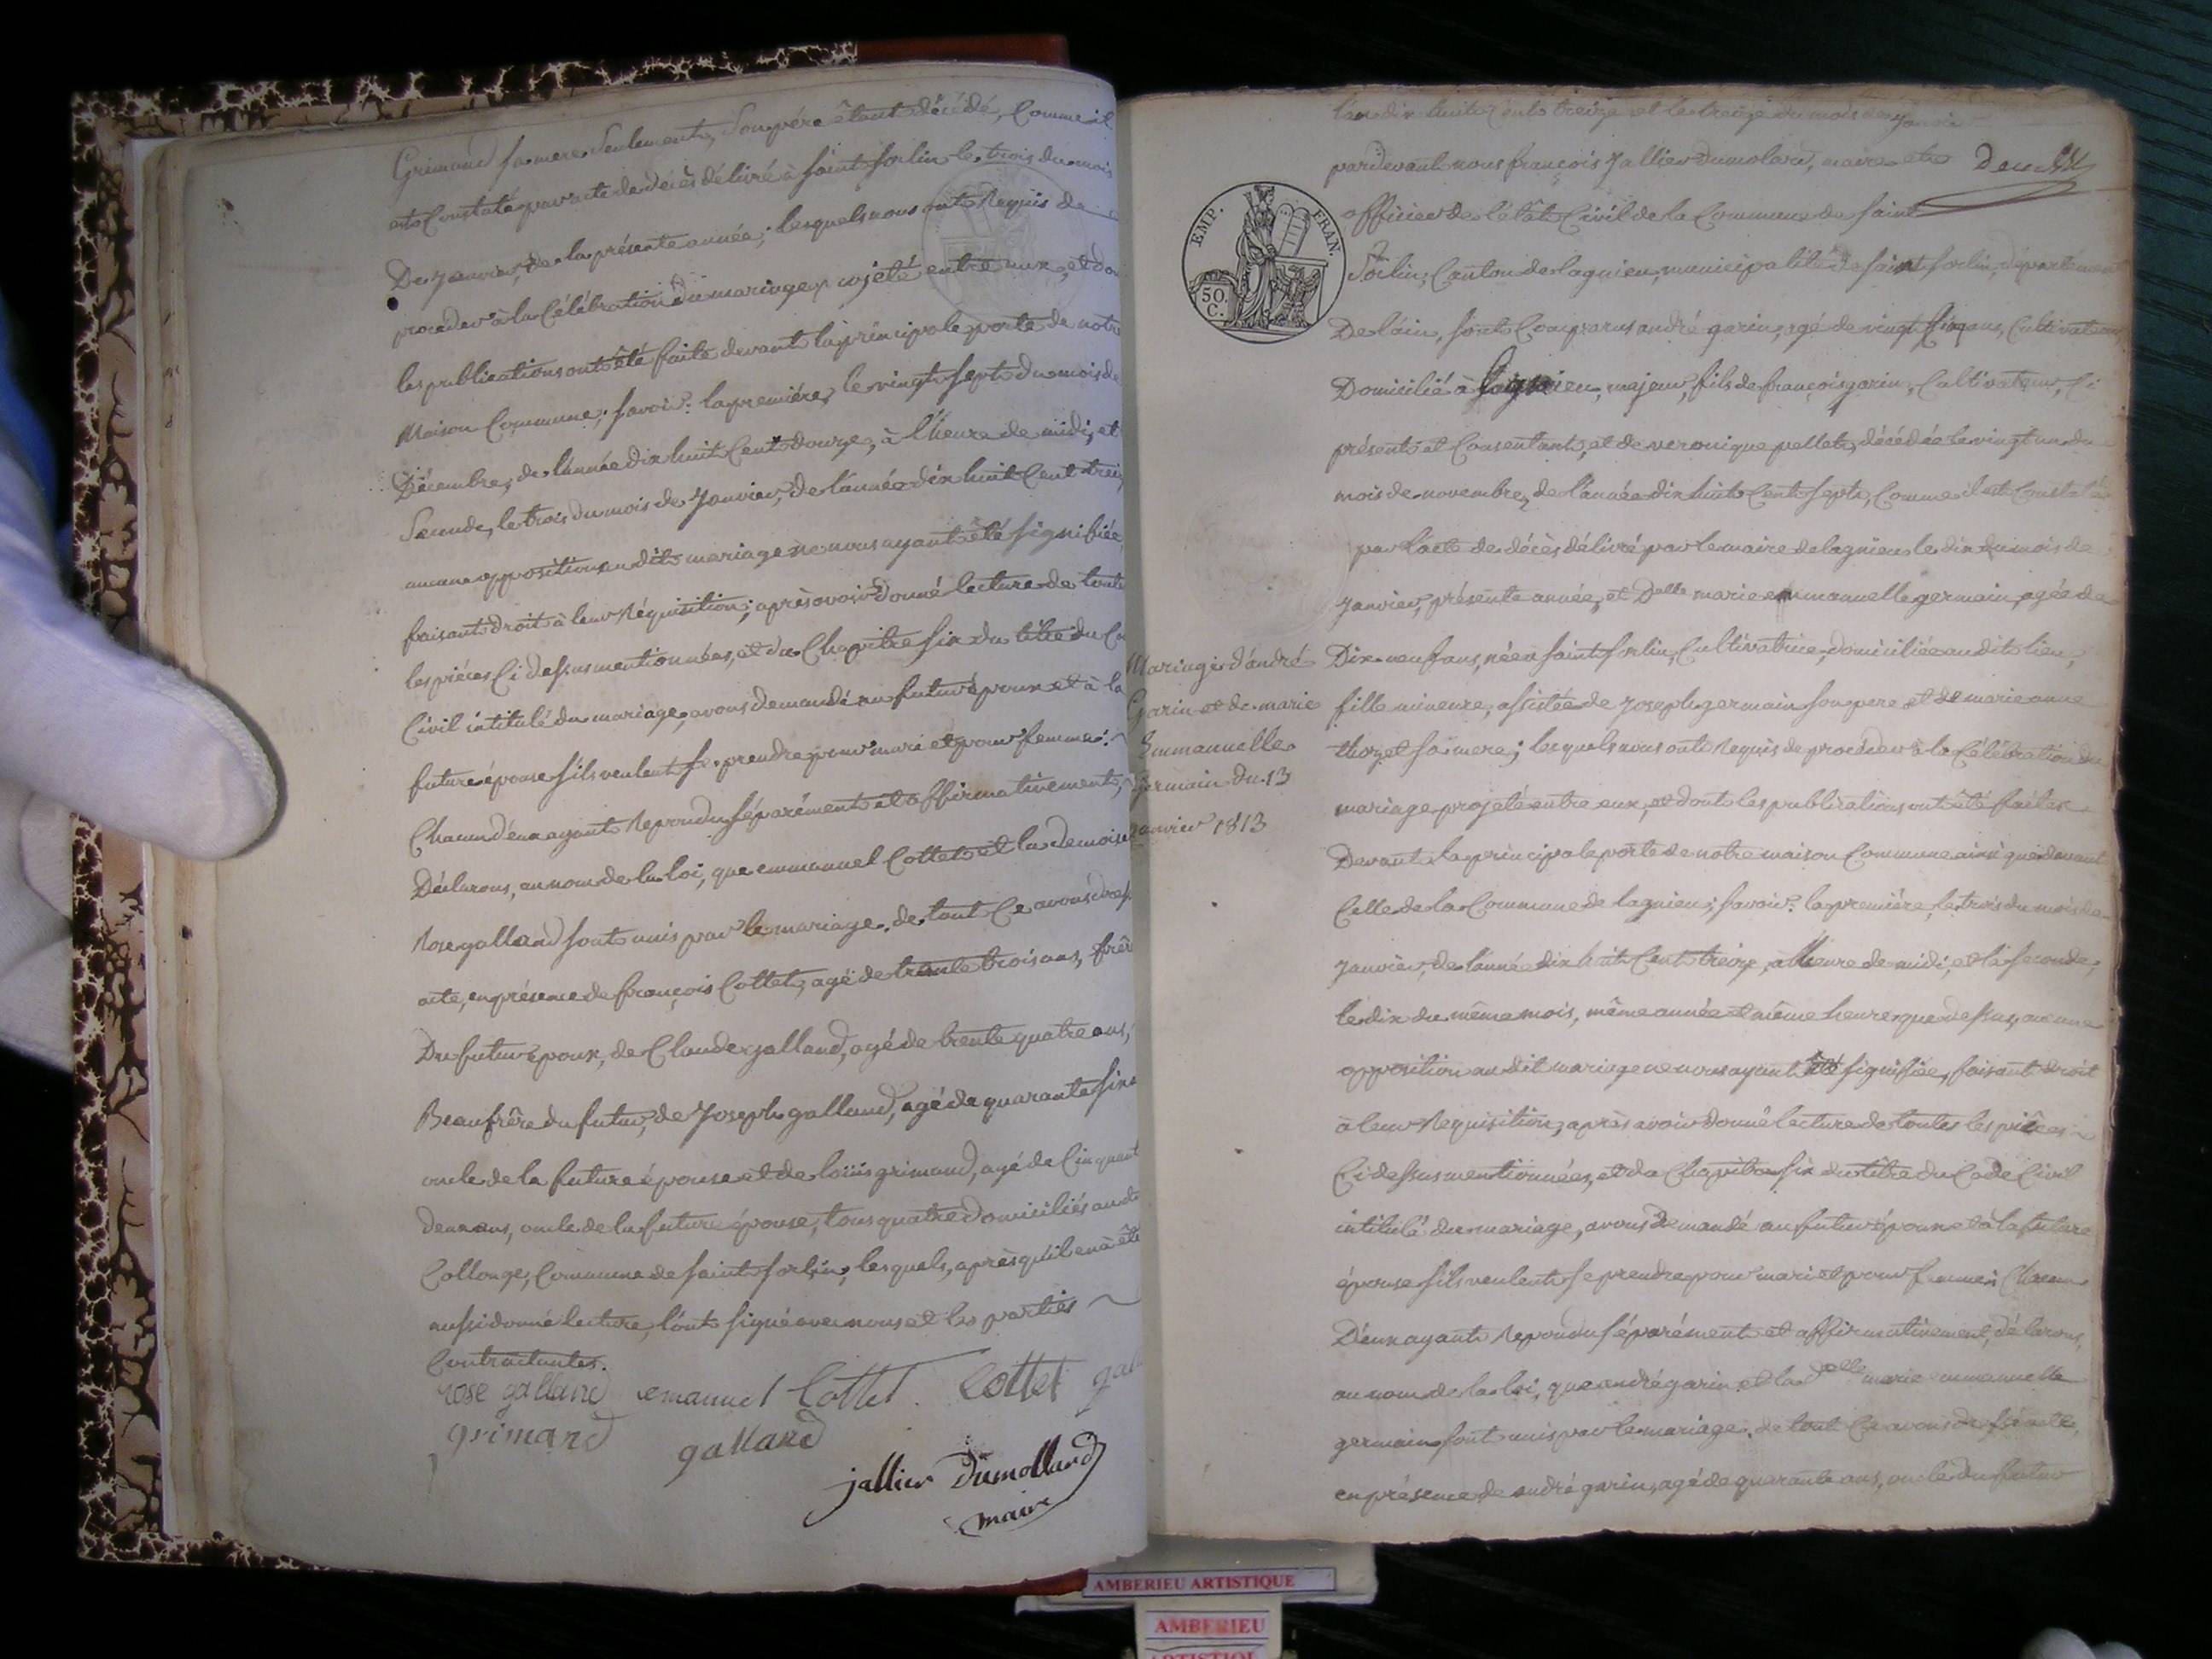 Grimand sa mere seulement, son père étant décédé, comme il
est constaté par acte de décès délivré à saint sorlin le trois du mois
De janvier, de la présente année; lesquels nous ont requis de
procéder à la célébration du mariage projeté entre eux, et do
les publications ont été faite devant la principale porte de notre
Maison Commune; savoir: la première, le vingt sept du mois de
Décembre, de l'année dix huit cent douze, à l'heure de midi, et
seconde, le trois du mois de Janvier, de l'année dix huit cent trei
aucune opposition au dit mariage ne nous ayant été signifiée,
faisant droit à leur réquisition; après avoir donné lecture de toute
les pièces ci dessus mentionnées, et du Chapitre six du titre du Co
Civil intitulé du mariage, avons demandé au futur époux et à la
future épouse s'ils veulent se prendre pour mari et pour femme:
Chacun d'eux ayant repondu séparément et affirmativement,
Déclarons, au nom de la loi, que emmanuel Cottet et la demoise
Rose galland sont unis par le mariage. de tout ce avons dress
acte, en présence de françois Cottet, agé de trente trois ans, frère
Du futur époux, de Claude galland, agé de trente quatre ans,
Beaufrère du futur, de Joseph galland, agé de quarante six a
oncle de la future épouse et de loüis grimand, agé de Cinquant
deux ans, oncle de la future épouse, tous quatre domiciliés au dit
Collonge, Commune de saint sorlin, lesquels, après qu'il en à été
aussi donné lecture, l'ont signé avec nous et les parties
Contractantes.
rose galland emanuel Cottet. Cottet gal
grimand galland
jallier Dumollard
maire
l'an dix huit cent treize et le treize du mois de janvier
pardevant nous françois Jallier Dumolard, maire et
officier de l'état Civil de la Commune de saint
Sorlin, Canton de lagnieu, municipalité de saint sorlin, département
EMP. FRAN.
50. C.
De l'ain, sont Comparus andré garin, agé de vingt six ans, Cultivateur,
Domicilié à lagnieu, majeur, fils de françois garin, Cultivateur, Ci
présent et Consentant, et de veronique pellet, décédée le vingt un du
mois de novembre, de l'année dix huit Cent sept, Comme il est Constaté
par l'acte de décès délivré par le maire de lagnieu le dix du mois de
janvier, présente année, et Delle marie emmanuelle germain, agée de
Mariage d'andré
Garin et de marie
Emmanuelle
germain du 13
janvier 1813
Dix neuf ans, née à saint sorlin, Cultivatrice, domiciliée au dit lieu,
fille mineure, assistée de Joseph germain son pere et de marie anne
thozet sa mere; lesquels nous ont requis de procéder à la Célébration du
mariage projeté entre eux, et dont les publications ont été faites
Devant la principale porte de notre maison Commune ainsi que devant
Celle de la Commune de lagnieu; savoir: la première, le trois du mois de
janvier, de l'année dix huit Cent treize, à l'heure de midi, et la seconde,
le dix du même mois, même année et même heure que dessus, aucune
opposition au dit mariage ne nous ayant été signifiée, faisant droit
à leur réquisition, après avoir donné lecture de toutes les pièces
Ci dessus mentionnées, et du Chapitre six du titre du Code Civil
intitulé du mariage, avons demandé au futur époux et à la future
épouse s'ils veulent se prendre pour mari et pour femme: Chacun
D'eux ayant repondu séparément et affirmativement, déclarons,
au nom de la loi, que andré garin et la Delle marie emmanuelle
germain sont unis par le mariage. de tout Ce avons dressé acte,
en présence de andré garin, agé de quarante ans, oncle du futur
AMBERIEU ARTISTIQUE
AMBERIEU
ARTISTIQUE